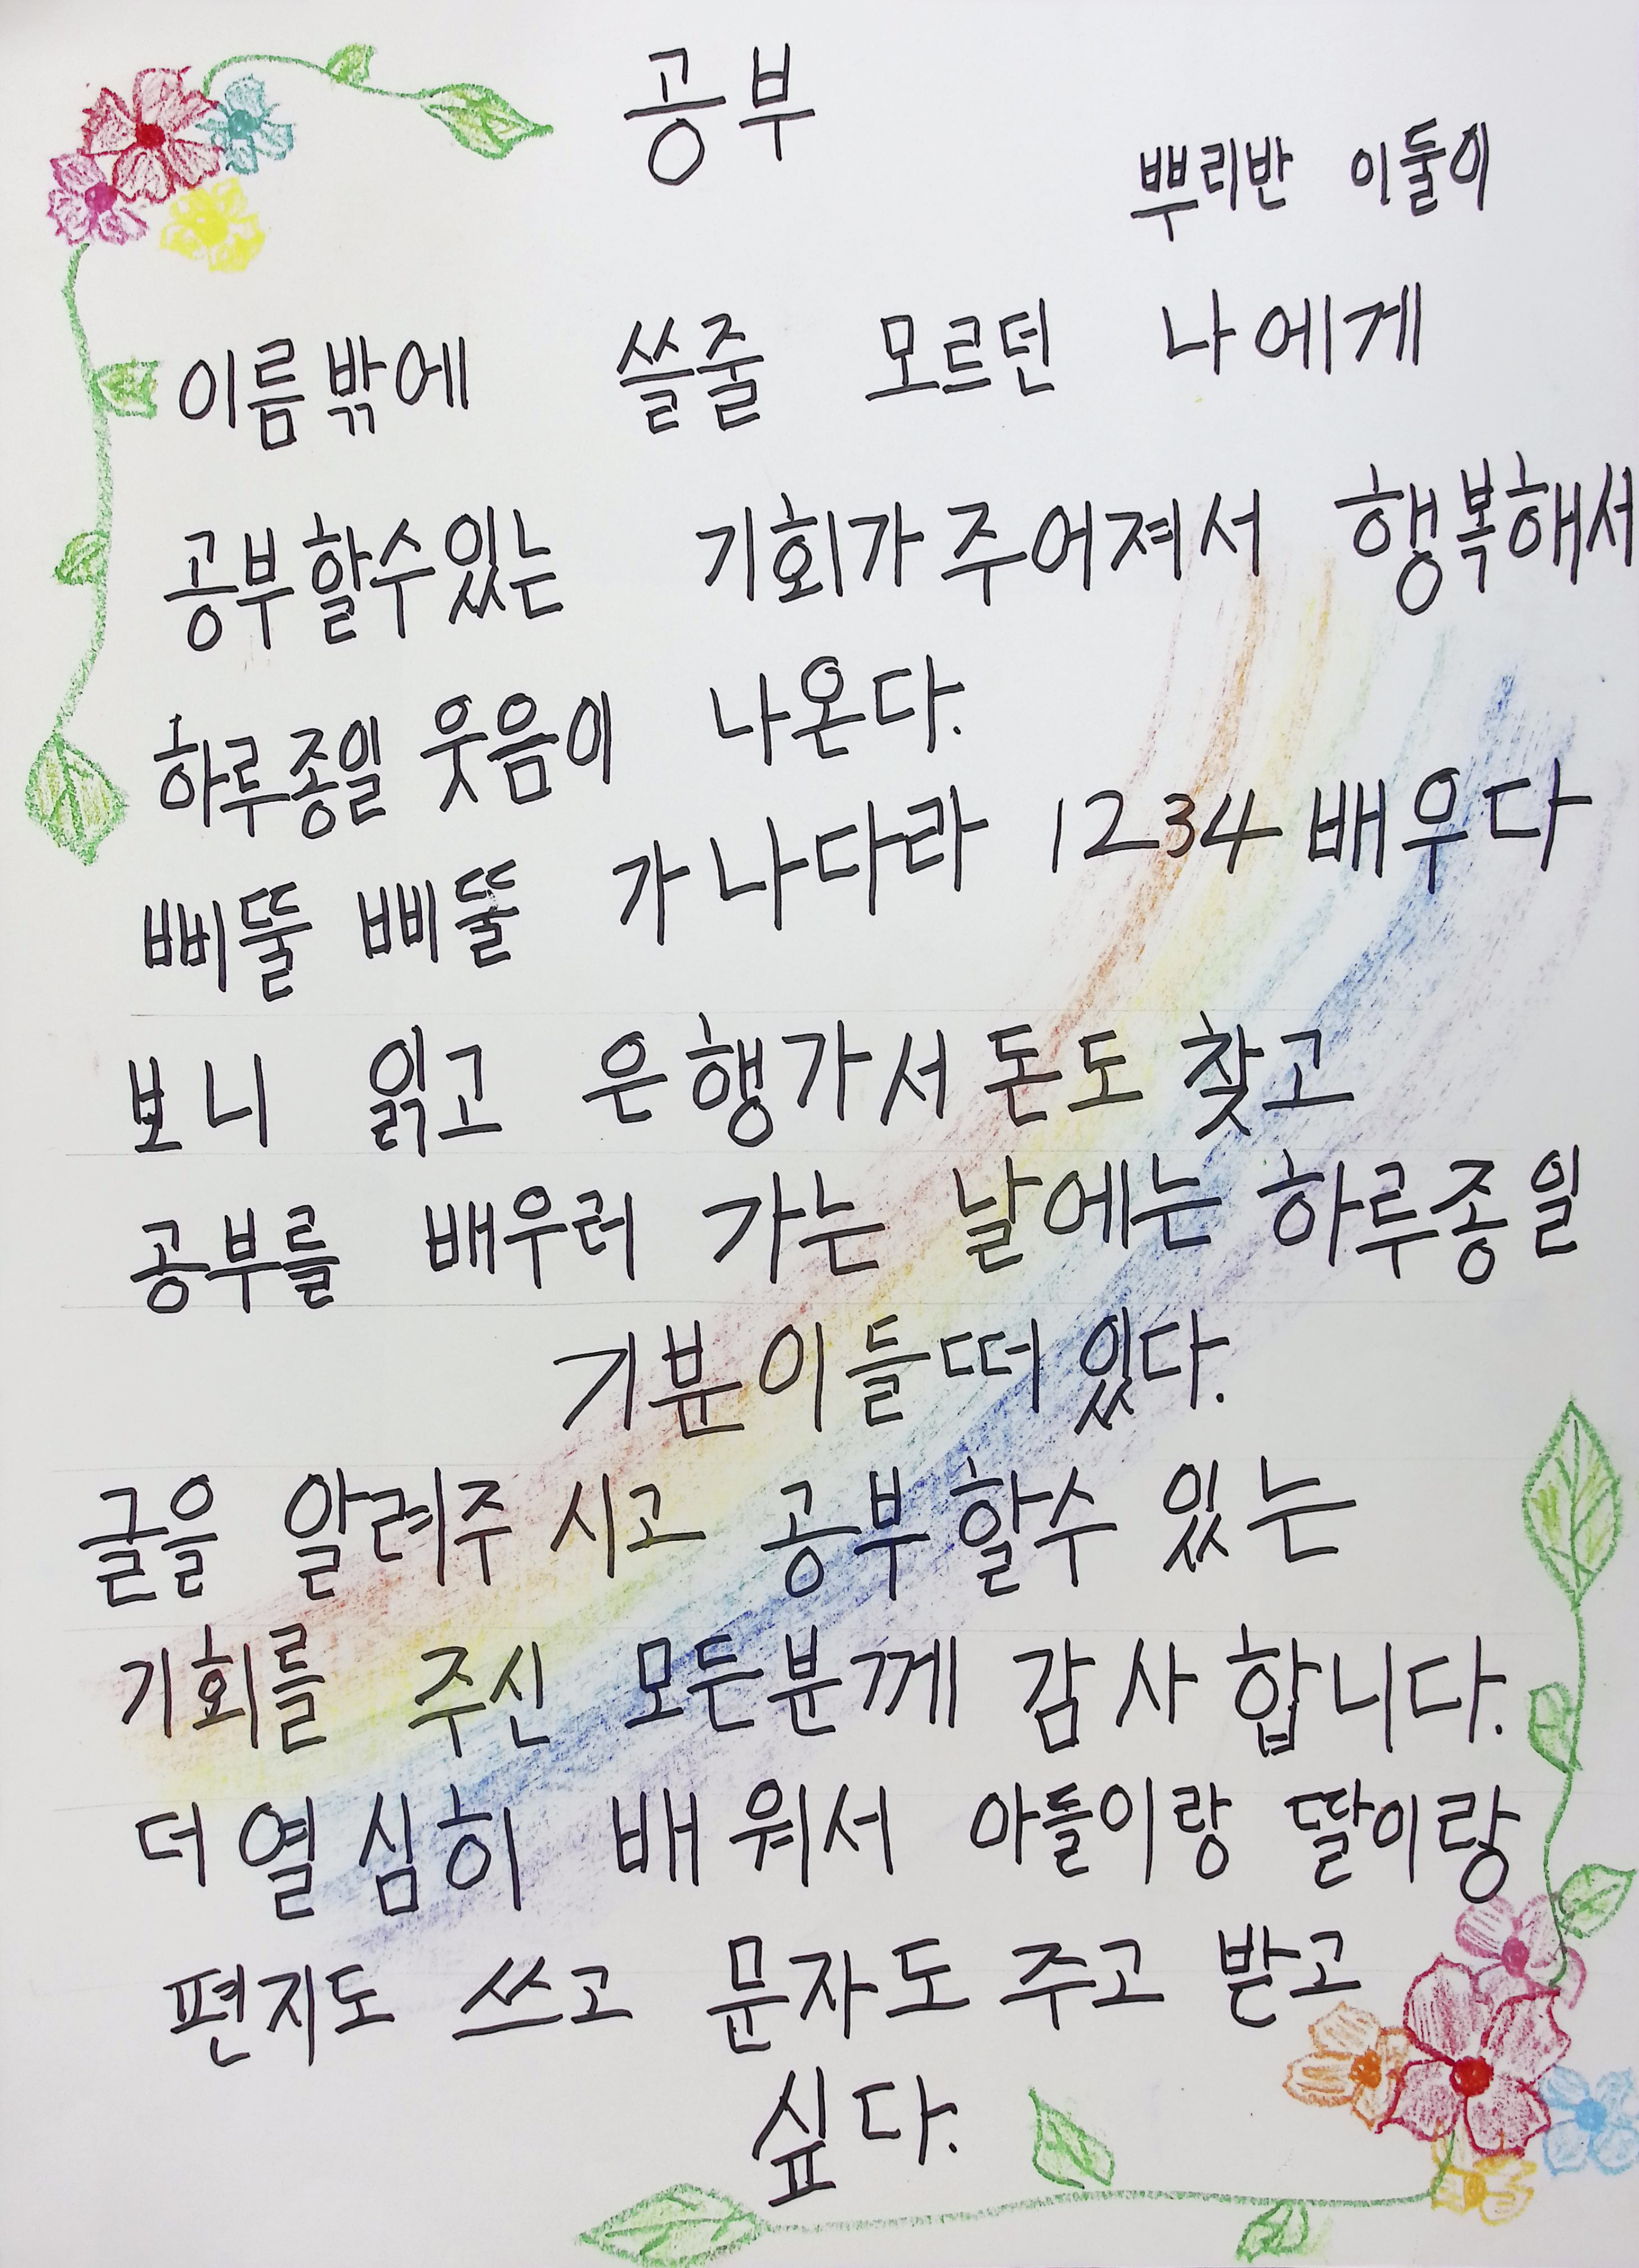 공부
뿌리반 이둘이
이름밖에 쓸줄 모르던 나에게
공부할수있는 기회가주어져서 행복해서
하루종일 웃음이 나온다.
삐뚤 삐뚤 가나다라 1234배우다
보니 읽고 은행가서돈도찾고
공부를 배우러 가는 날에는하루종일
기분이들떠있다.
글을 알려주시고 공부할수 있는
기회를 주신 모든분께 감사합니다.
더열심히 배워서 아들이랑 딸이랑
편지도 쓰고 문자도주고 받고
싶다.